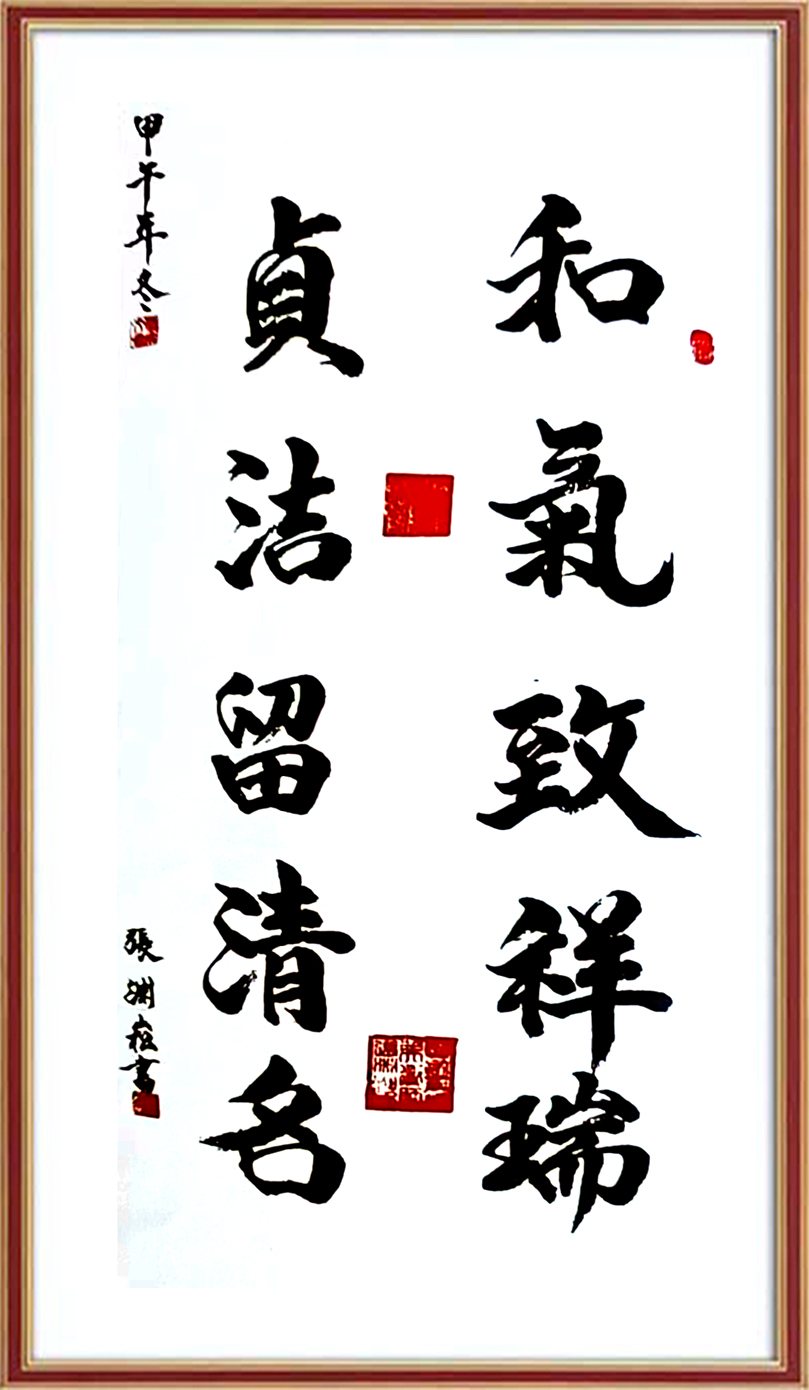 和氣致祥瑞
貞洁留清名
甲午年冬
張渊崧書